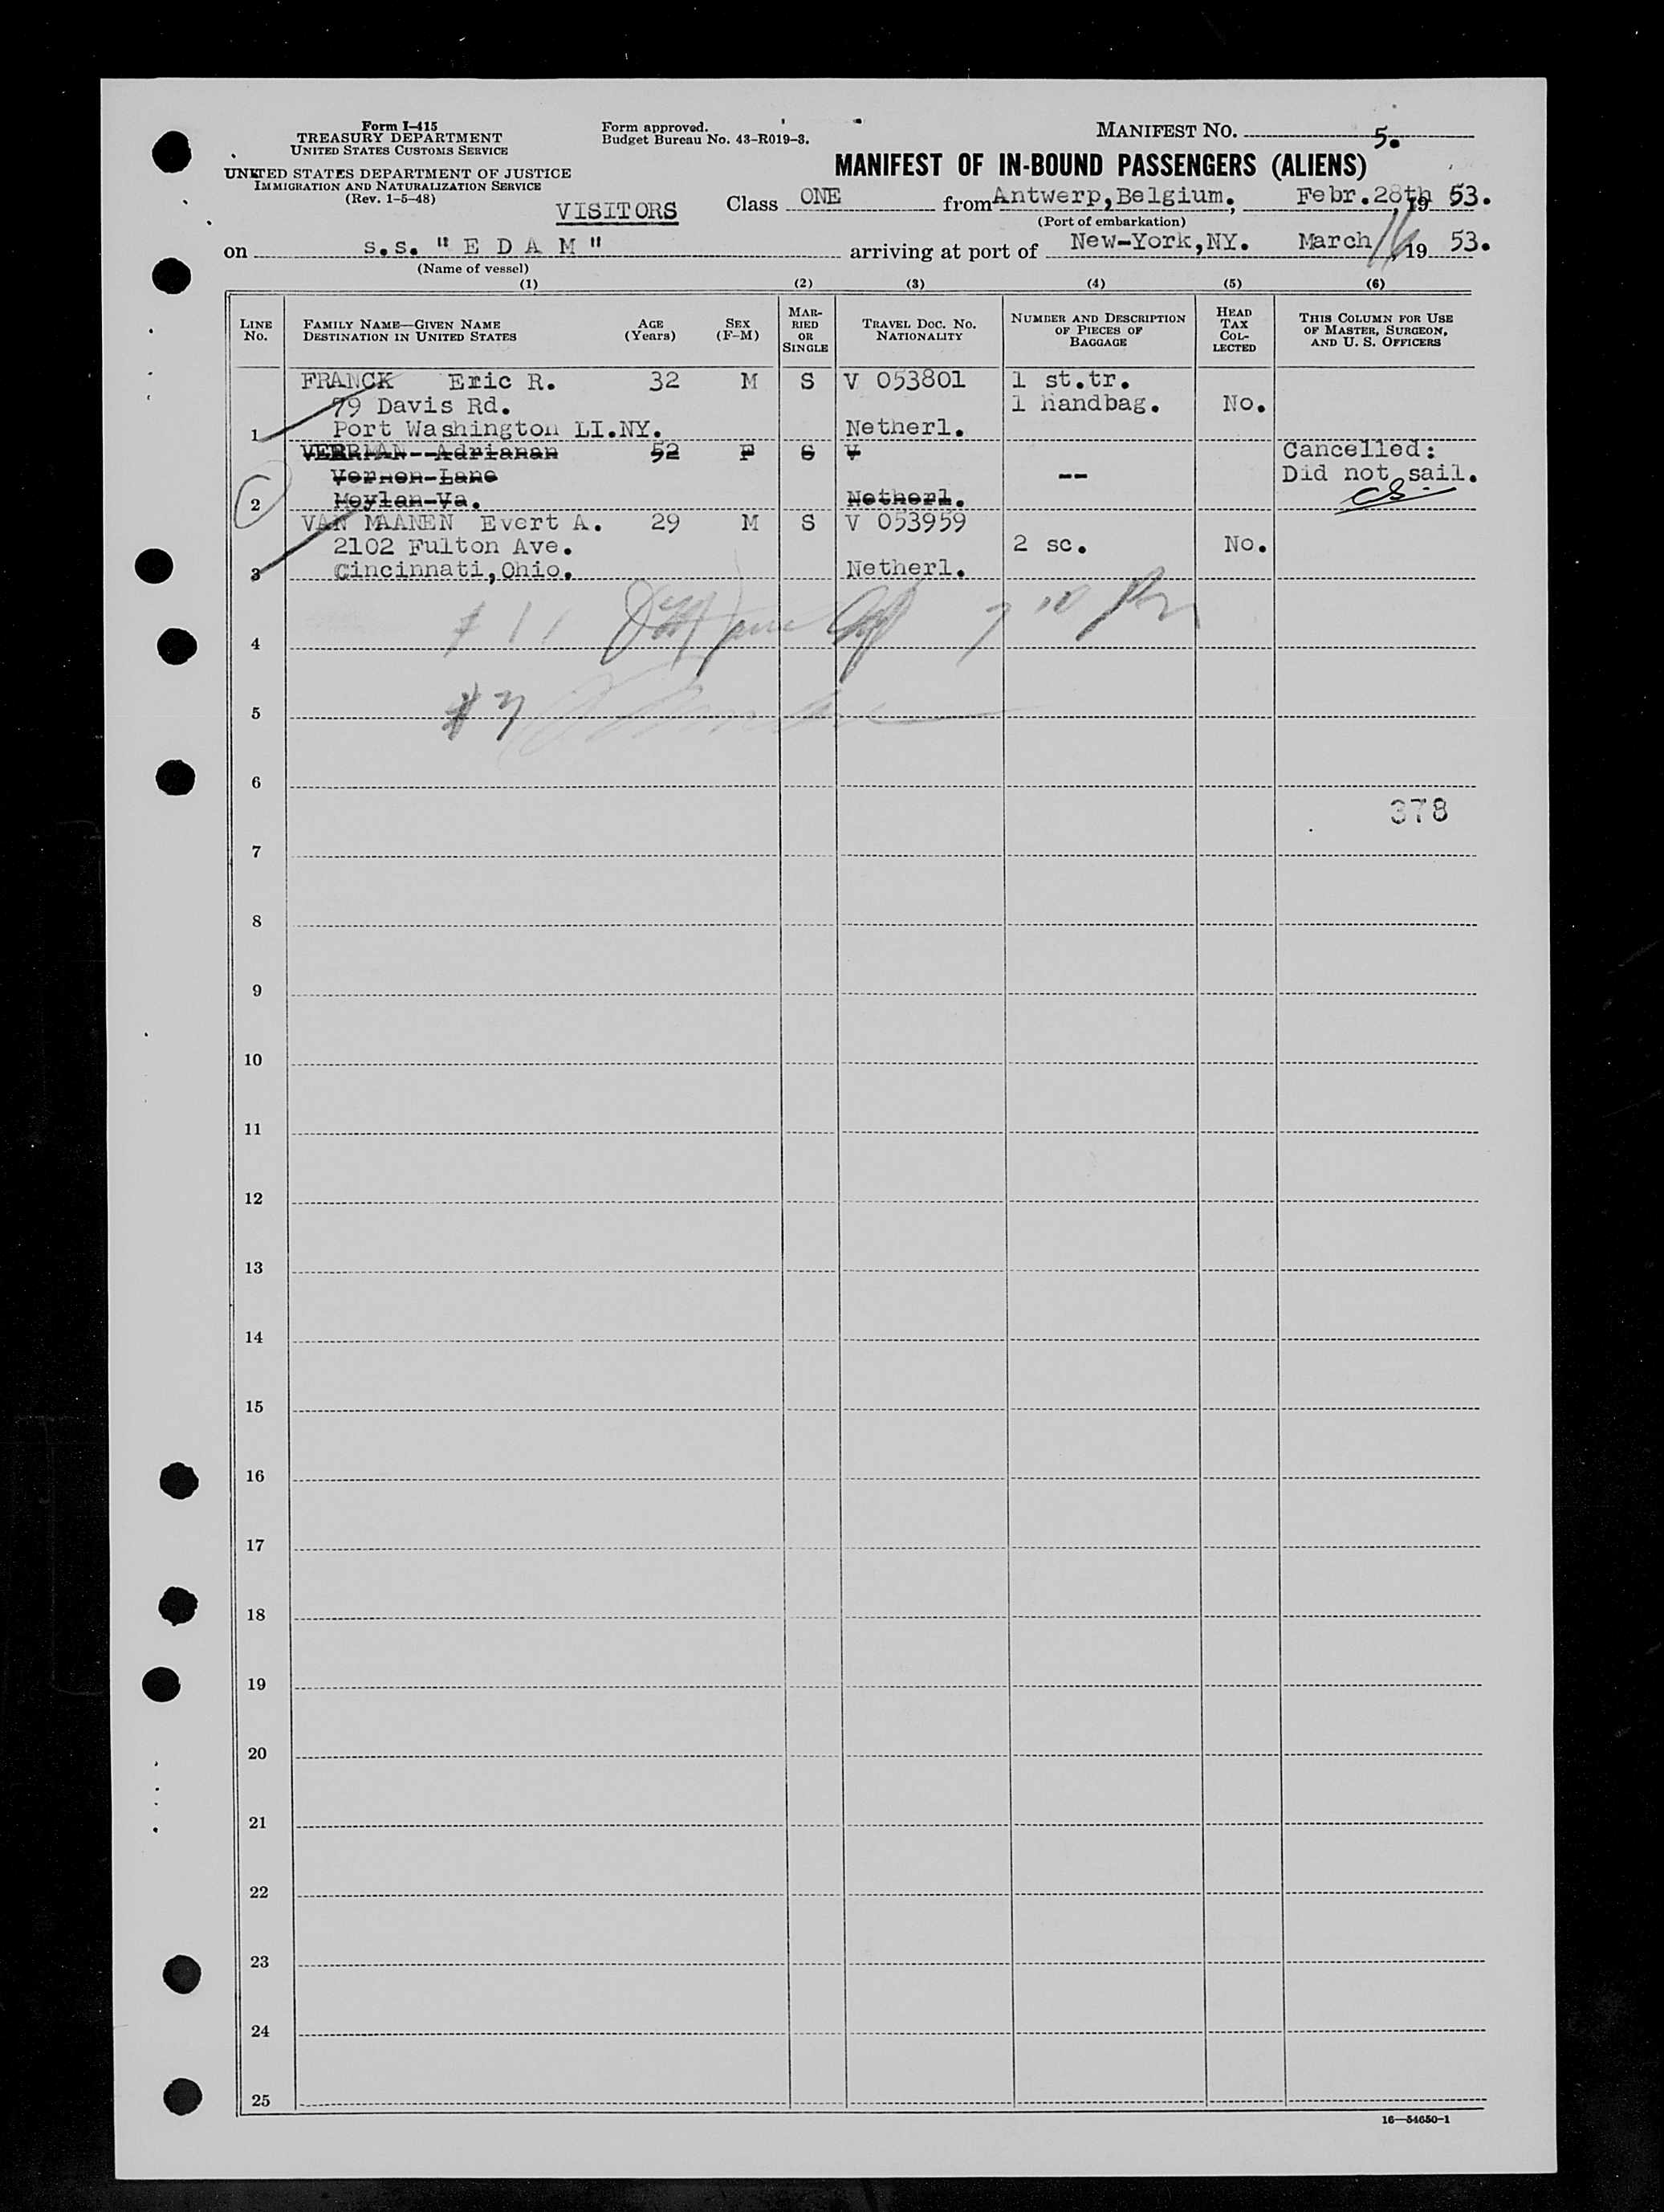 Form I-415
TREASURY DEPARTMENT
UNITED STATES CUSTOMS SERVICE
UNITED STATES DEPARTMENT OF JUSTICE
IMMIGRATION AND NATURALIZATION SERVICE
(Rev. 1-5-48)
Form approved.
Budget Bureau No. 43-R019-3.
MANIFEST NO. 5.
MANIFEST OF IN-BOUND PASSENGERS (ALIENS)
VISITORS Class ONE from Antwerp,Belgium., Febr.28th, 19 53.
(Port of embarkation)
on s.s. "E D A M" arriving at port of New-York,NY. March 16, 19 53.
(Name of vessel)
(1) (2) (3) (4) (5) (6)
LINE NO. FAMILY NAME—GIVEN NAME DESTINATION IN UNITED STATES AGE (Years) SEX (F-M) MARRIED OR SINGLE TRAVEL DOC. NO. NATIONALITY NUMBER AND DESCRIPTION OF PIECES OF BAGGAGE HEAD TAX COLLECTED THIS COLUMN FOR USE OF MASTER, SURGEON, AND U. S. OFFICERS
FRANCK Eric R. 32 M S V 053801 1 st.tr.
79 Davis Rd. 1 handbag. No.
1 Port Washington LI.NY. Netherl.
VERMAN--Adrianan 52 F S V Cancelled:
Vernon-Lane -- Did not sail.
2 Moylan-Va. Netherl. CS.
VAN MAANEN Evert A. 29 M S V 053959
2102 Fulton Ave. 2 sc. No.
3 Cincinnati,Ohio. Netherl.
4
5
6
378
7
8
9
10
11
12
13
14
15
16
17
18
19
20
21
22
23
24
25
16—54650-1